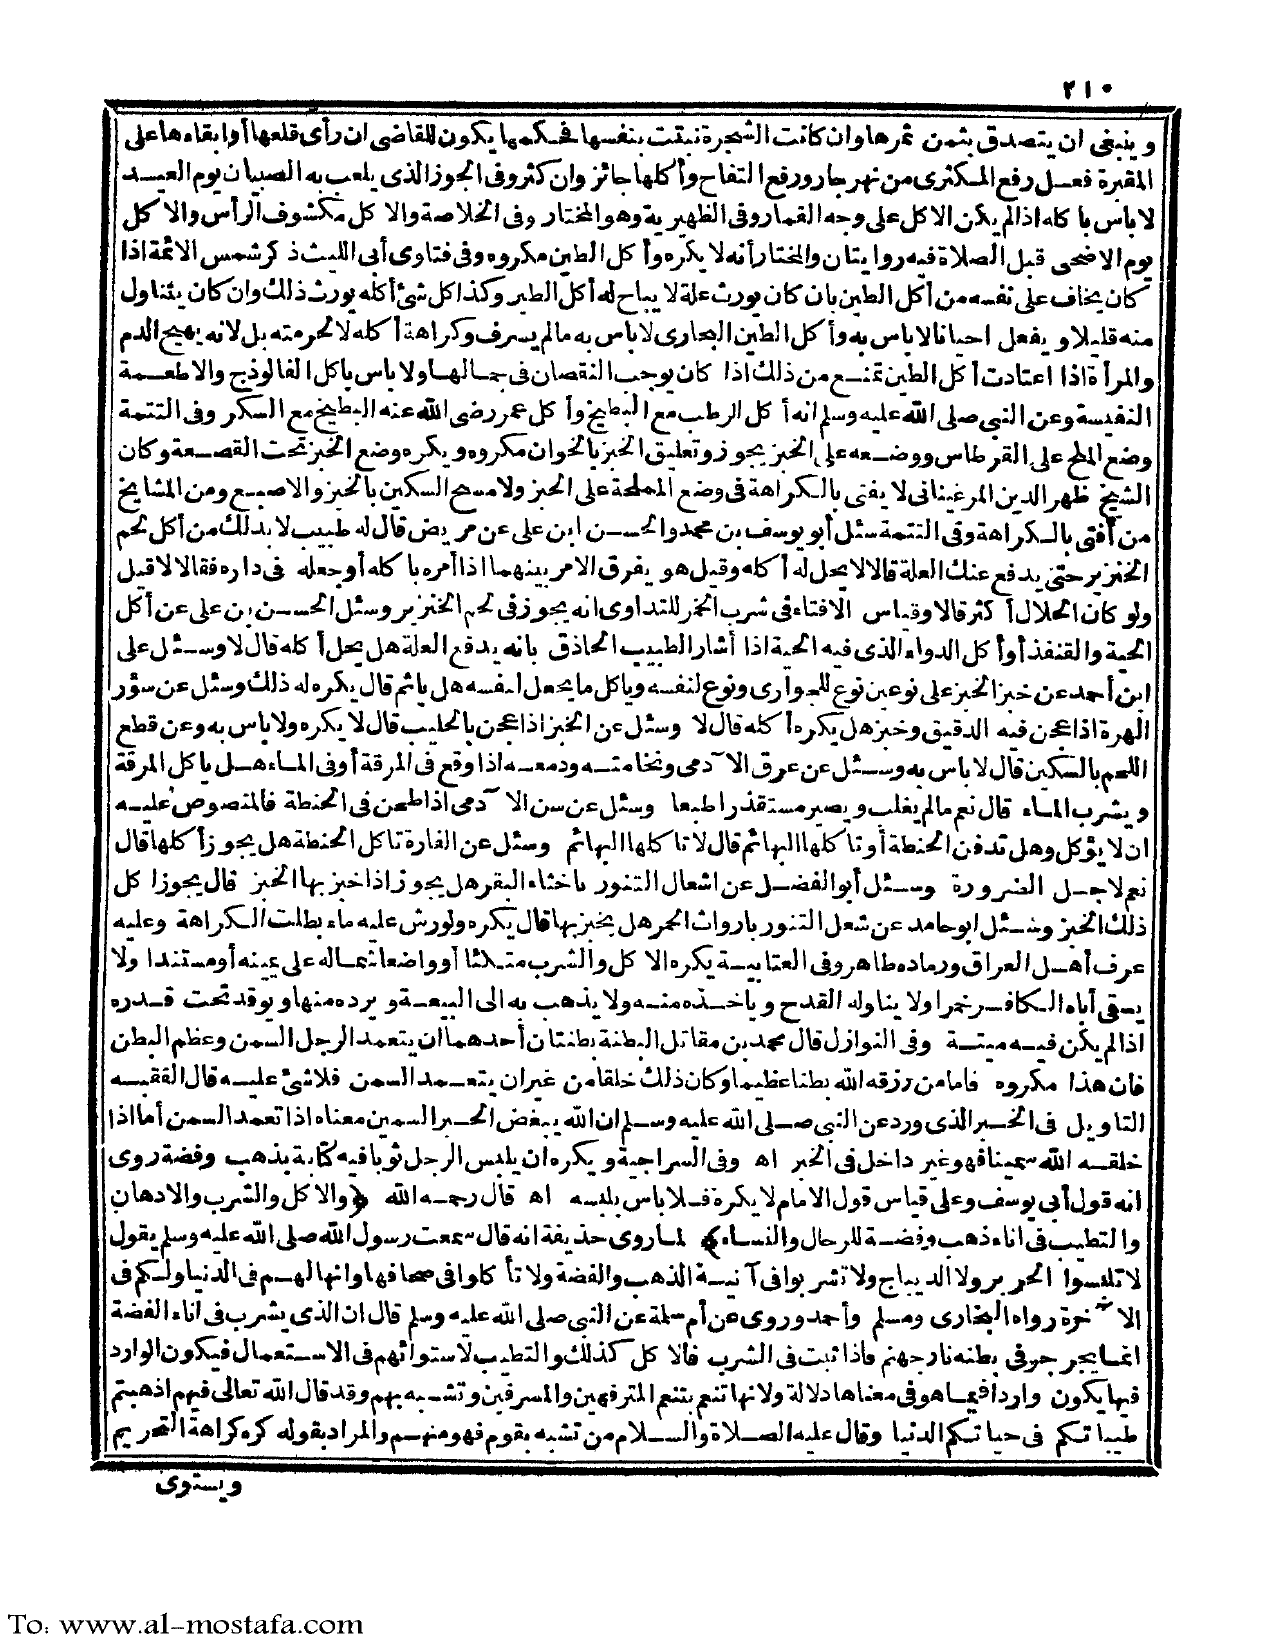 ٢١٠
وينبغى ان يتصدق بثمن ثمرها وان كانت الشجرة نبتت بنفسها فحكمها يكون للقاضى ان رأى قلعها أو ابقاءها على
المقبرة فعل رفع الكمثرى من نهر جار ورفع التفاح وأكلها جائز وان كثر وفى الجوز الذى يلعب به الصبيان يوم العيد
لا باس باكله اذا لم يكن الاكل على وجه القمار وفى الظهيرية وهو المختار وفى الخلاصة والاكل مكشوف الرأس والاكل
يوم الاضحى قبل الصلاة فيه روايتان والمختار أنه لا يكره وأكل الطين مكروه وفى فتاوى أبى الليث ذكر شمس الائمة اذا
كان يخاف على نفسه من أكل الطين بان كان يورث علة لا يباح له أكل الطير وكذا كل شئ أكله يورث ذلك وان كان يتناول
منه قليلا ويفعل احيانا لا باس به وأكل الطين البخارى لا باس به مالم يسرف وكراهة أكله لا لحرمته بل لانه يهيج الدم
والمرأة اذا اعتادت أكل الطين تمنع من ذلك اذا كان يوجب النقصان فى جمالها ولا باس باكل الفالوذج والاطعمة
النفيسة وعن النبى صلى الله عليه وسلم انه أكل الرطب مع البطيخ وأكل عمر رضى الله عنه البطيخ مع السكر وفى التتمة
وضع الملح على القرطاس ووضعه على الخبز يجوز وتعليق الخبز بالخوان مكروه ويكره وضع الخبز تحت القصعة وكان
الشيخ ظهر الدين المرغينانى لا يفتى بالكراهة فى وضع المملحة على الخبز ولا مسح السكين بالخبز والاصبع ومن المشايخ
من أفتى بالكراهة وفى التتمة سئل أبو يوسف بن محمد والحسن ابن على عن مريض قال له طبيب لا بد لك من أكل لحم
الخنزير حتى يدفع عنك العلة قالا لا يحل له أكله وقيل هو يفرق الامر بينهما اذا أمره باكله أو جعله فى داره فقالا لا قيل
ولو كان الحلال أكثر قالا وقياس الافتاء فى شرب الخمر للتداوى انه يجوز فى لحم الخنزير وسئل الحسن بن على عن أكل
الحية والقنفذ أو أكل الدواء الذى فيه الحية اذا أشار الطبيب الحاذق بانه يدفع العلة هل يحل أكله قال لا وسئل على
ابن أحمد عن خبز الخبز على نوعين نوع للجوارى ونوع لنفسه ويا كل ما يجعل لنفسه هل ياثم قال يكره له ذلك وسئل عن سؤر
الهرة اذا عجن فيه الدقيق وخبز هل يكره أكله قال لا وسئل عن الخبز اذا عجن بالحليب قال لا يكره ولا باس به وعن قطع
اللحم بالسكين قال لا باس به وسئل عن عرق الآدمى ونخامته ودمعه اذا وقع فى المرقة أوفى الماء هل يا كل المرقة
ويشرب الماء قال نعم مالم يغلب ويصير مستقذرا طبعا وسئل عن سن الآدمى اذا طحن فى الحنطة فالمنصوص عليه
ان لا يؤكل وهل تدفن الحنطة أو تا كلها البهائم قال لا تا كلها البهائم وسئل عن الفارة تا كل الحنطة هل يجوز أكلها قال
نعم لاجل الضرورة وسئل أبو الفضل عن اشعال التنور باخثاء البقر هل يجوز اذا خبز بها الخبز قال يجوز اكل
ذلك الخبز وسئل ابو حامد عن شعل التنور باروات الحمر هل يخبز بها قال يكره ولو رش عليه ماء بطلت الكراهة وعليه
عرف أهل العراق ورماده طاهر وفى العتابية يكره الاكل والشرب متكئا أو واضعا شماله على يمينه أو مستندا ولا
يسقى أباه الكافر خمرا ولا يناوله القدح وياخذه منه ولا يذهب به الى البيعة ويرده منها ويوقد تحت قدره
اذا لم يكن فيه ميتة وفى النوازل قال محمد بن مقاتل البطنة بطنتان أحدهما ان يتعمد الرجل السمن وعظم البطن
فان هذا مكروه فاما من رزقه الله بطنا عظيما وكان ذلك خلقا من غير ان يتعمد السمن فلا شئ عليه قال الفقيه
التاويل فى الخبر الذى ورد عن النبى صلى الله عليه وسلم ان الله يبغض الحبر السمين معناه اذا تعمد السمن أما اذا
خلقه الله سمينا فهو غير داخل فى الخبر اه وفى السراجية ويكره ان يلبس الرجل ثوبا فيه كتابة بذهب وفضة روى
انه قول أبى يوسف وعلى قياس قول الامام لا يكره فلا باس بلبسه اه قال رحمه الله ﴿والاكل والشرب والادهان
والتطيب فى اناء ذهب وفضة للرجال والنساء﴾ لما روى حذيفة انه قال سمعت رسول الله صلى الله عليه وسلم يقول
لا تلبسوا الحرير ولا الديباج ولا تشربوا فى آنية الذهب والفضة ولا تأكلوا فى صحافها وانها لهم فى الدنيا ولكم فى
الآخرة رواه البخارى ومسلم وأحمد وروى عن أم سلمة عن النبى صلى الله عليه وسلم قال ان الذى يشرب فى اناء الفضة
انما يجر جر فى بطنه نار جهنم فاذا ثبت فى الشرب فالاكل كذلك والتطيب لاستوائهم فى الاستعمال فيكون الوارد
فيها يكون واردا فيما هو فى معناها دلالة ولانها تنعم بتنعم المترفهين والمسرفين وتشبه بهم وقد قال الله تعالى فيهم اذهبتم
طيباتكم فى حياتكم الدنيا وقال عليه الصلاة والسلام من تشبه بقوم فهو منهم والمراد بقوله كره كراهة التحريم
ويستوى
To: www.al-mostafa.com